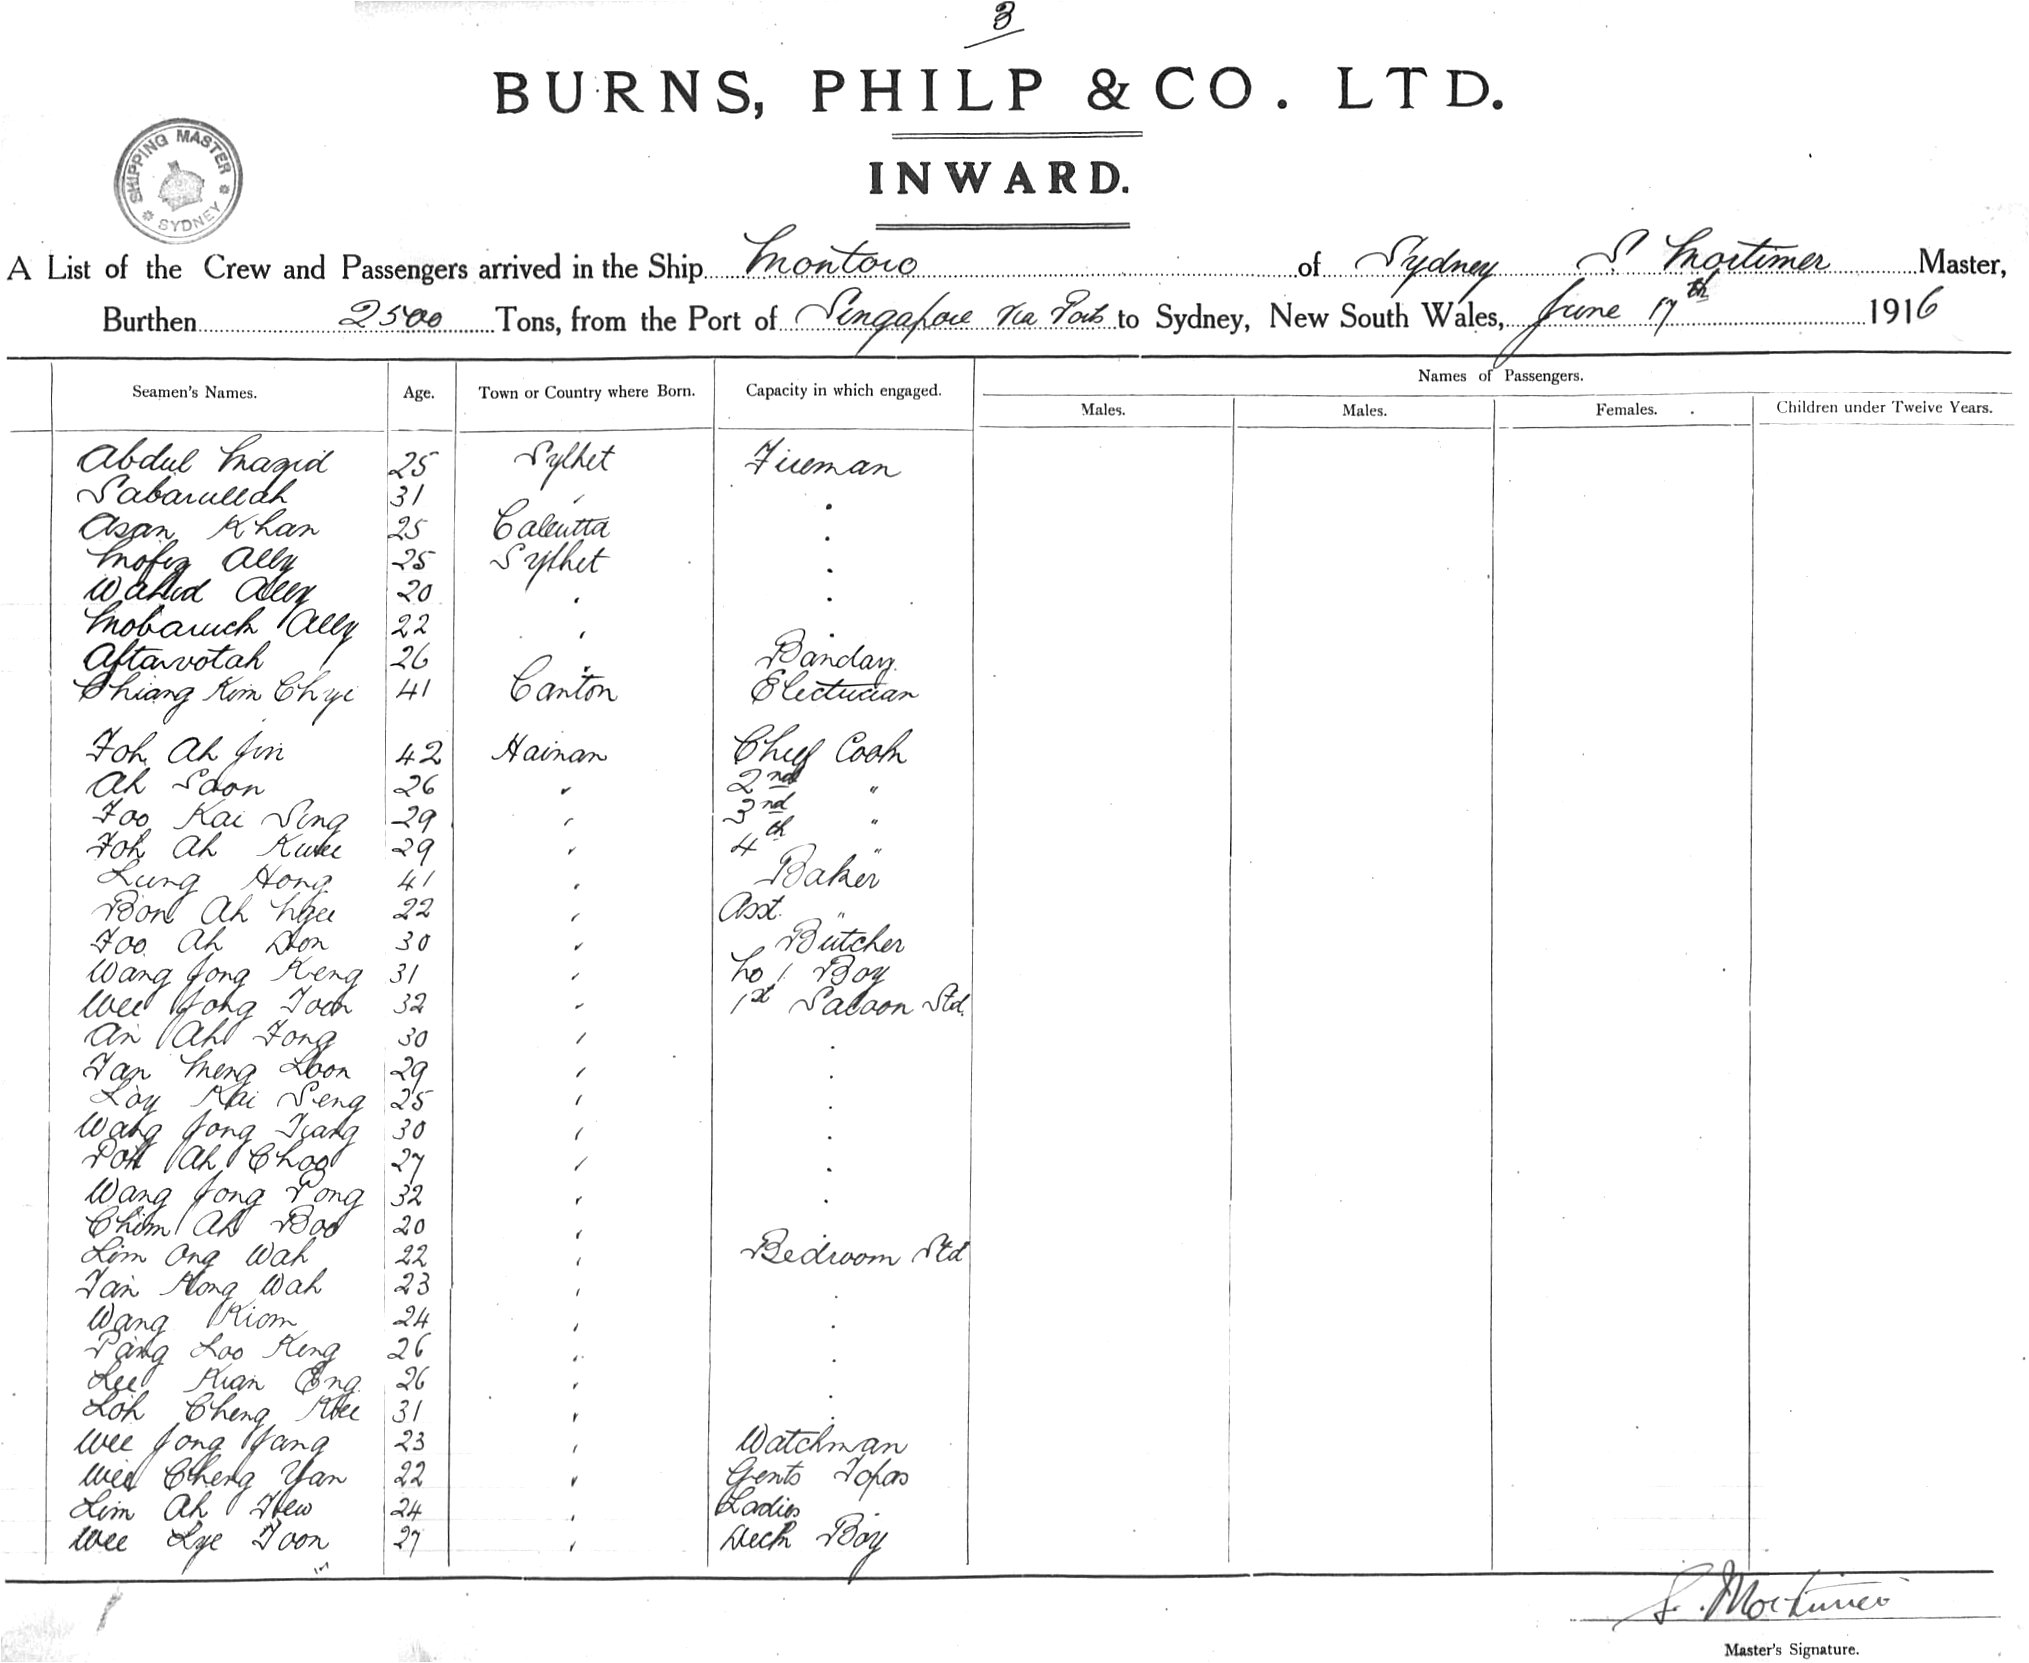 3
BURNS, PHILP & CO. LTD.
INWARD.
SHIPPING MASTER SYDNEY
A List of the Crew and Passengers arrived in the Ship Montoro of Sydney S. Mortimer Master,
Burthen 2500 Tons, from the Port of Singapore via Ports to Sydney, New South Wales, June 17th 1916
Seamen's Names. Age. Town or Country where Born. Capacity in which engaged. Names of Passengers.
Males. Males. Females. Children under Twelve Years.
Abdul Mazid 25 Sylhet Fireman
Sabarullah 31 "
Asan Khan 25 Calcutta "
Mofiz Ally 25 Sylhet "
Wahid Ally 20 " "
Mobaruck Ally 22 " "
Aftarvotah 26 " Banday
Chiang Kim Chye 41 Canton Electrician
Foh Ah Jin 42 Hainan Chief Cook
Ah Soon 26 " 2nd "
Foo Kai Sing 29 " 3nd "
Foh Ah Kwee 29 " 4th "
Lung Hong 41 " Baker
Bon Ah Ngee 22 " Asst. "
Foo Ah Don 30 " Butcher
Wang Jong Keng 31 " No 1 Boy
Wee Jong Toon 32 " 1st Saloon Std.
An Ah Fong 30 " "
Tan Meng Loon 29 " "
Loy Kai Seng 25 " "
Wang Jong Tiang 30 " "
Poh Ah Choo 27 " "
Wang Jong Pong 32 " "
Chim Ah Boo 20 "
Lim Ong Wah 22 " Bedroom Std
Tan Hong Wah 23 " "
Wang Kiom 24 " "
Pang Loo Keng 26 " "
Lee Kian Eng 26 " "
Loh Cheng Kee 31 " "
Wee Jong Jang 23 " Watchman
Wee Cheng Yan 22 " Gents Topas
Lim Ah Tew 24 " Ladies "
Wee Lye Toon 27 " Deck Boy
S. Mortimer
Master's Signature.